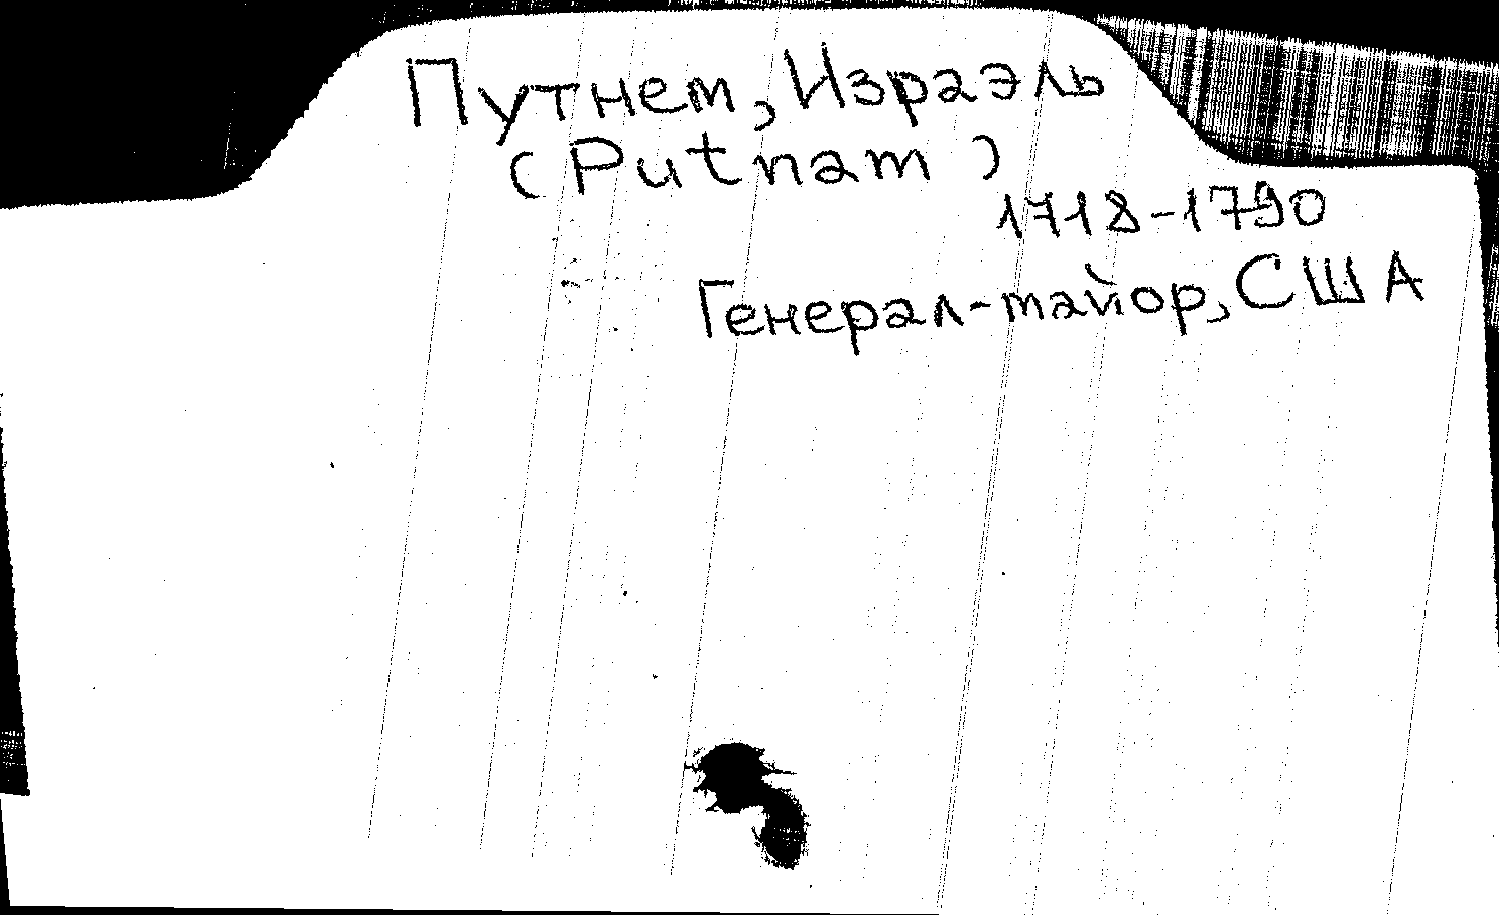 Путнем, Израэль
(Putnam)
1718-1790
Генерал-майор, США